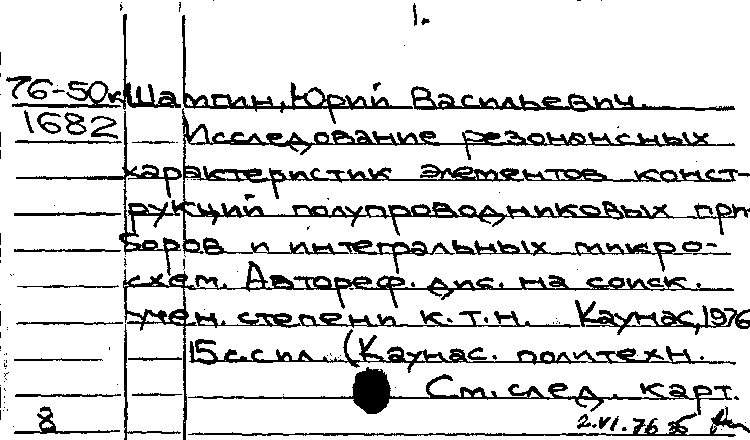 1.
76-50к Шамгин, Юрий Васильевич.
1682 Исследование резонансных
характеристик элементов конст-
рукций полупроводниковых при
боров и интегральных микро-
схем. Автореф. дис. на соиск.
учен. степени к.т.н. Каунас, 1976
15 с. с ил. (Каунас. политехн.
См. след. карт.
8 2.VI.76